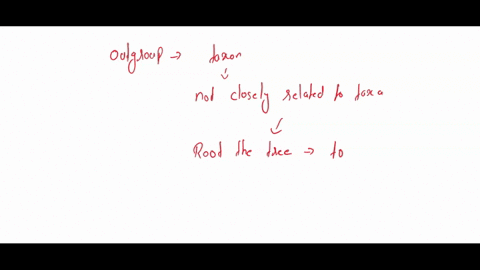 Outgroup → taxon
not closely related to taxa
Root the tree → to